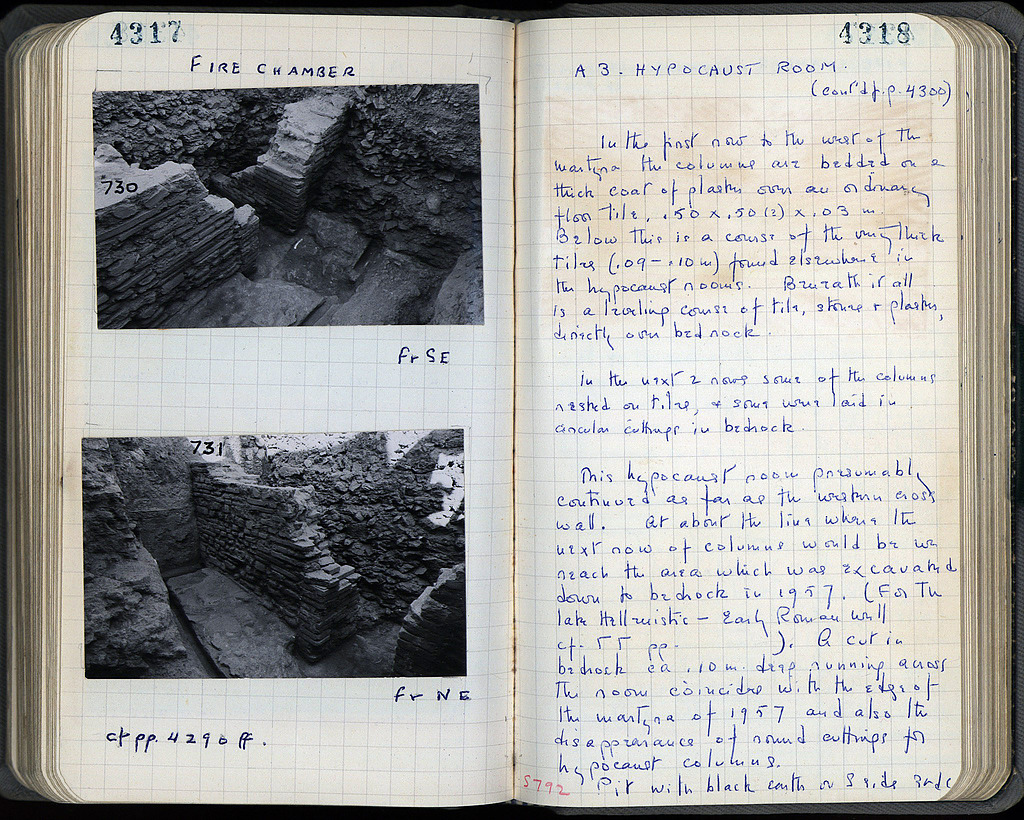 4317
FIRE CHAMBER
730
fr SE
731
fr NE
cf pp. 4290 ff.
4318
A 3. HYPOCAUST ROOM.
(cont'd f. p. 4300)
In the first row to the west of the
martyra the columns are bedded on a
thick coat of plaster over an ordinary
floor tile, .50 x .50 (2) x .03 m.
Below this is a course of the very thick
tiles (.09 - .10 m) found elsewhere in
the hypocaust rooms. Beneath it all
is a leveling course of tile, stones + plaster,
directly over bedrock.
In the next 2 rows some of the columns
rested on tiles, & some were laid in
circular cuttings in bedrock.
This hypocaust room presumably
continued as far as the western cross
wall. At about the line where the
next row of columns would be we
reach the area which was excavated
down to bedrock in 1957. (For the
late Hellenistic - Early Roman well
cf. ΓΓ pp. ). A cut in
bedrock ca .10 m. deep running across
the room coincides with the edge of
the martyra of 1957 and also the
disappearance of round cuttings for
hypocaust columns.
5792
Pit with black earth on S side